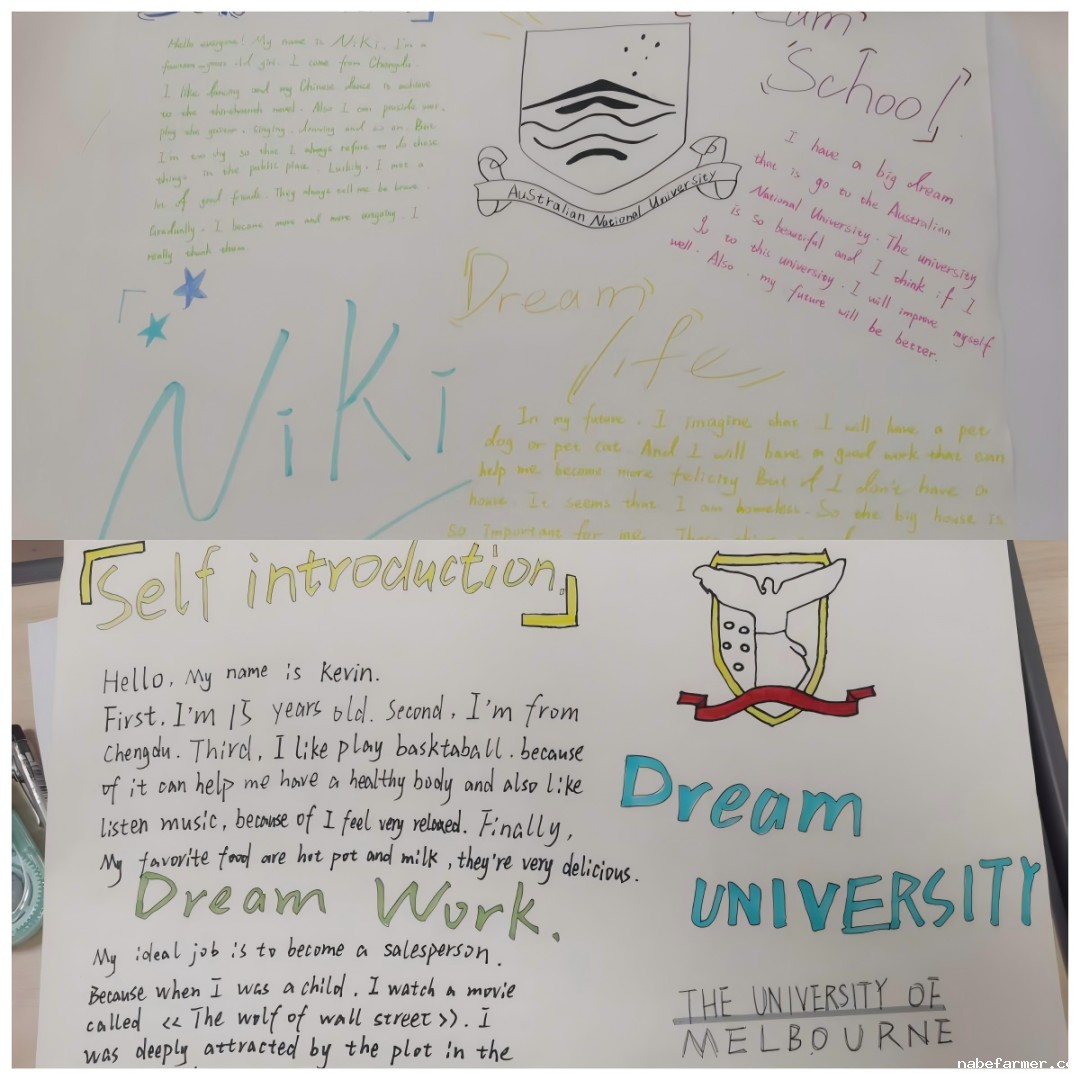 Hello everyone! My name is Niki, I'm a
fourteen-years-old girl. I come from Chengdu
I like dancing and my Chinese dance is achieve
to the thirteenth novel. Also I can provide
play the guitar, singing, drawing and so on. But
I'm too shy so that I always refuse to do these
things in the public place. Luckily, I met a
lot of good friends. They always tell me be brave.
Gradually, I become more and more outgoing. I
really thank them.
Niki
Australian National University
Dream
School
I have a big dream
that is go to the Australian
National University. The university
is so beautiful and I think if I
go to this university. I will improve myself
well. Also, my future will be better.
Dream
life
In my future, I imagine that I will have a pet
dog or pet cat. And I will have a good work that can
help me become more felicity But if I don't have a
house. It seems that I am homeless. So the big house is
so important for me.
Self introduction
Hello, My name is Kevin.
First, I'm 15 years old. Second, I'm from
Chengdu. Third, I like play basktaball. because
of it can help me have a healthy body and also like
listen music, because of I feel very relaxed. Finally,
My favorite food are hot pot and milk, they're very delicious.
Dream Work.
My ideal job is to become a salesperson.
Because when I was a child, I watch a movie
called << The wolf of wall street >>. I
was deeply attracted by the plot in the
Dream
UNIVERSITY
THE UNIVERSITY OF
MELBOURNE
nabefarmer.co